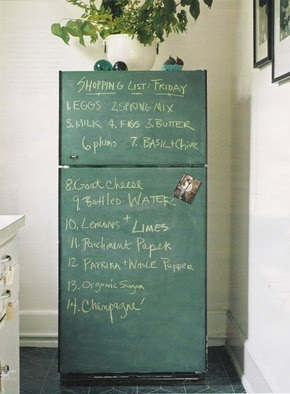 SHOPPING LIST: FRIDAY
1. EGGS 2. SPRING MIX
3. MILK 4. FIGS 5. BUTTER
6 plums 7. BASIL + Chive
8. Goat Cheese
9. Bottled WATER
10. LEMONS + LIMES
11. Parchment Paper
12 PAPRIKA + WHITE Pepper
13. Organic Sugar
14. Champagne!